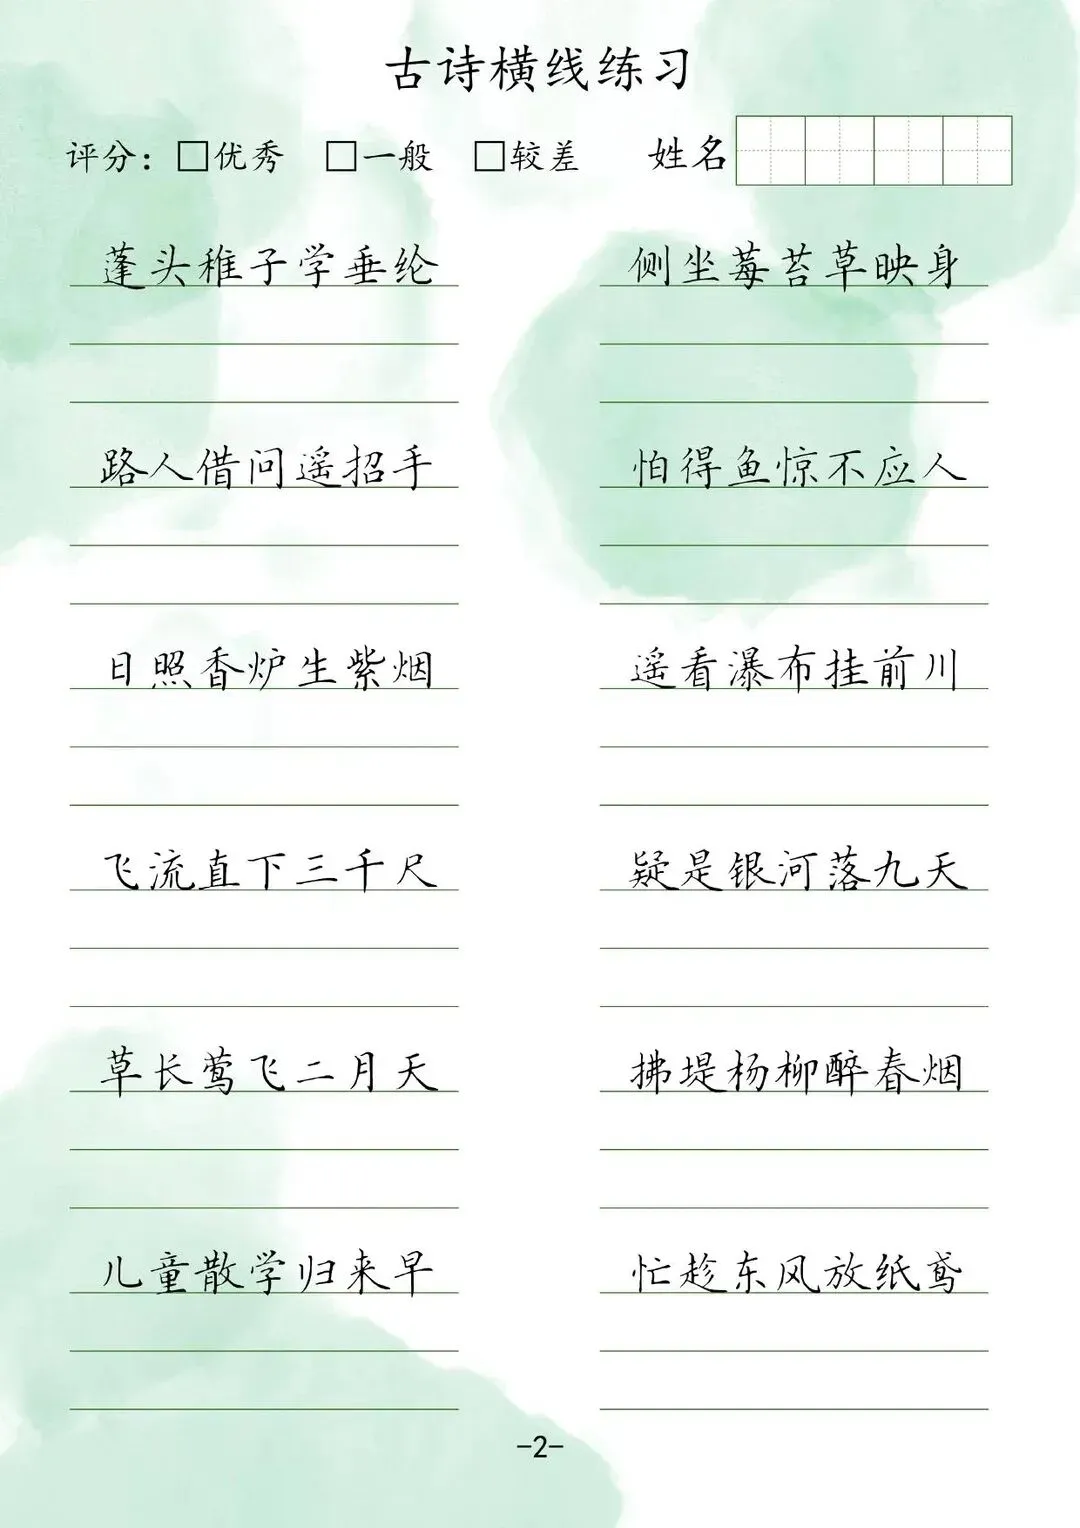 古诗横线练习
评分：□优秀 □一般 □较差 姓名
蓬头稚子学垂纶 侧坐莓苔草映身
路人借问遥招手 怕得鱼惊不应人
日照香炉生紫烟 遥看瀑布挂前川
飞流直下三千尺 疑是银河落九天
草长莺飞二月天 拂堤杨柳醉春烟
儿童散学归来早 忙趁东风放纸鸢
-2-